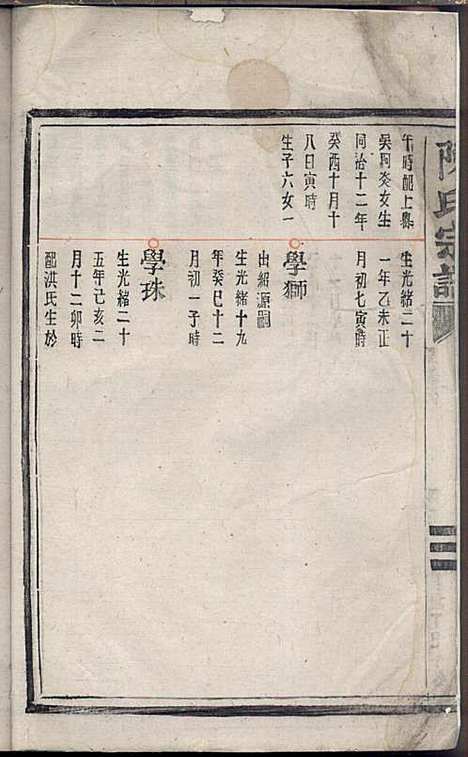 陳氏宗譜
午時配上舉
吳阿炎女生
同治十二年
癸酉十月十
八日寅時
生子六女一
生光緒二十
一年乙未正
月初七寅時
學獅
出紹源嗣
生光緒十九
年癸巳十二
月初一子時
學珠
生光緒二十
五年己亥二
月十二卯時
配洪氏生於